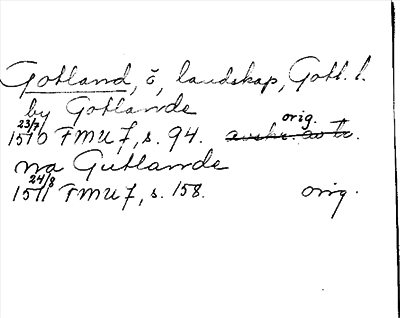 Gotland, ö, landskap, Gotl. l.
by Gotlande
23/7 1510 FMU 7, s. 94. orig. avskr. av tr.
na Gutlande
24/8 1511 FMU 7, s. 158. orig.